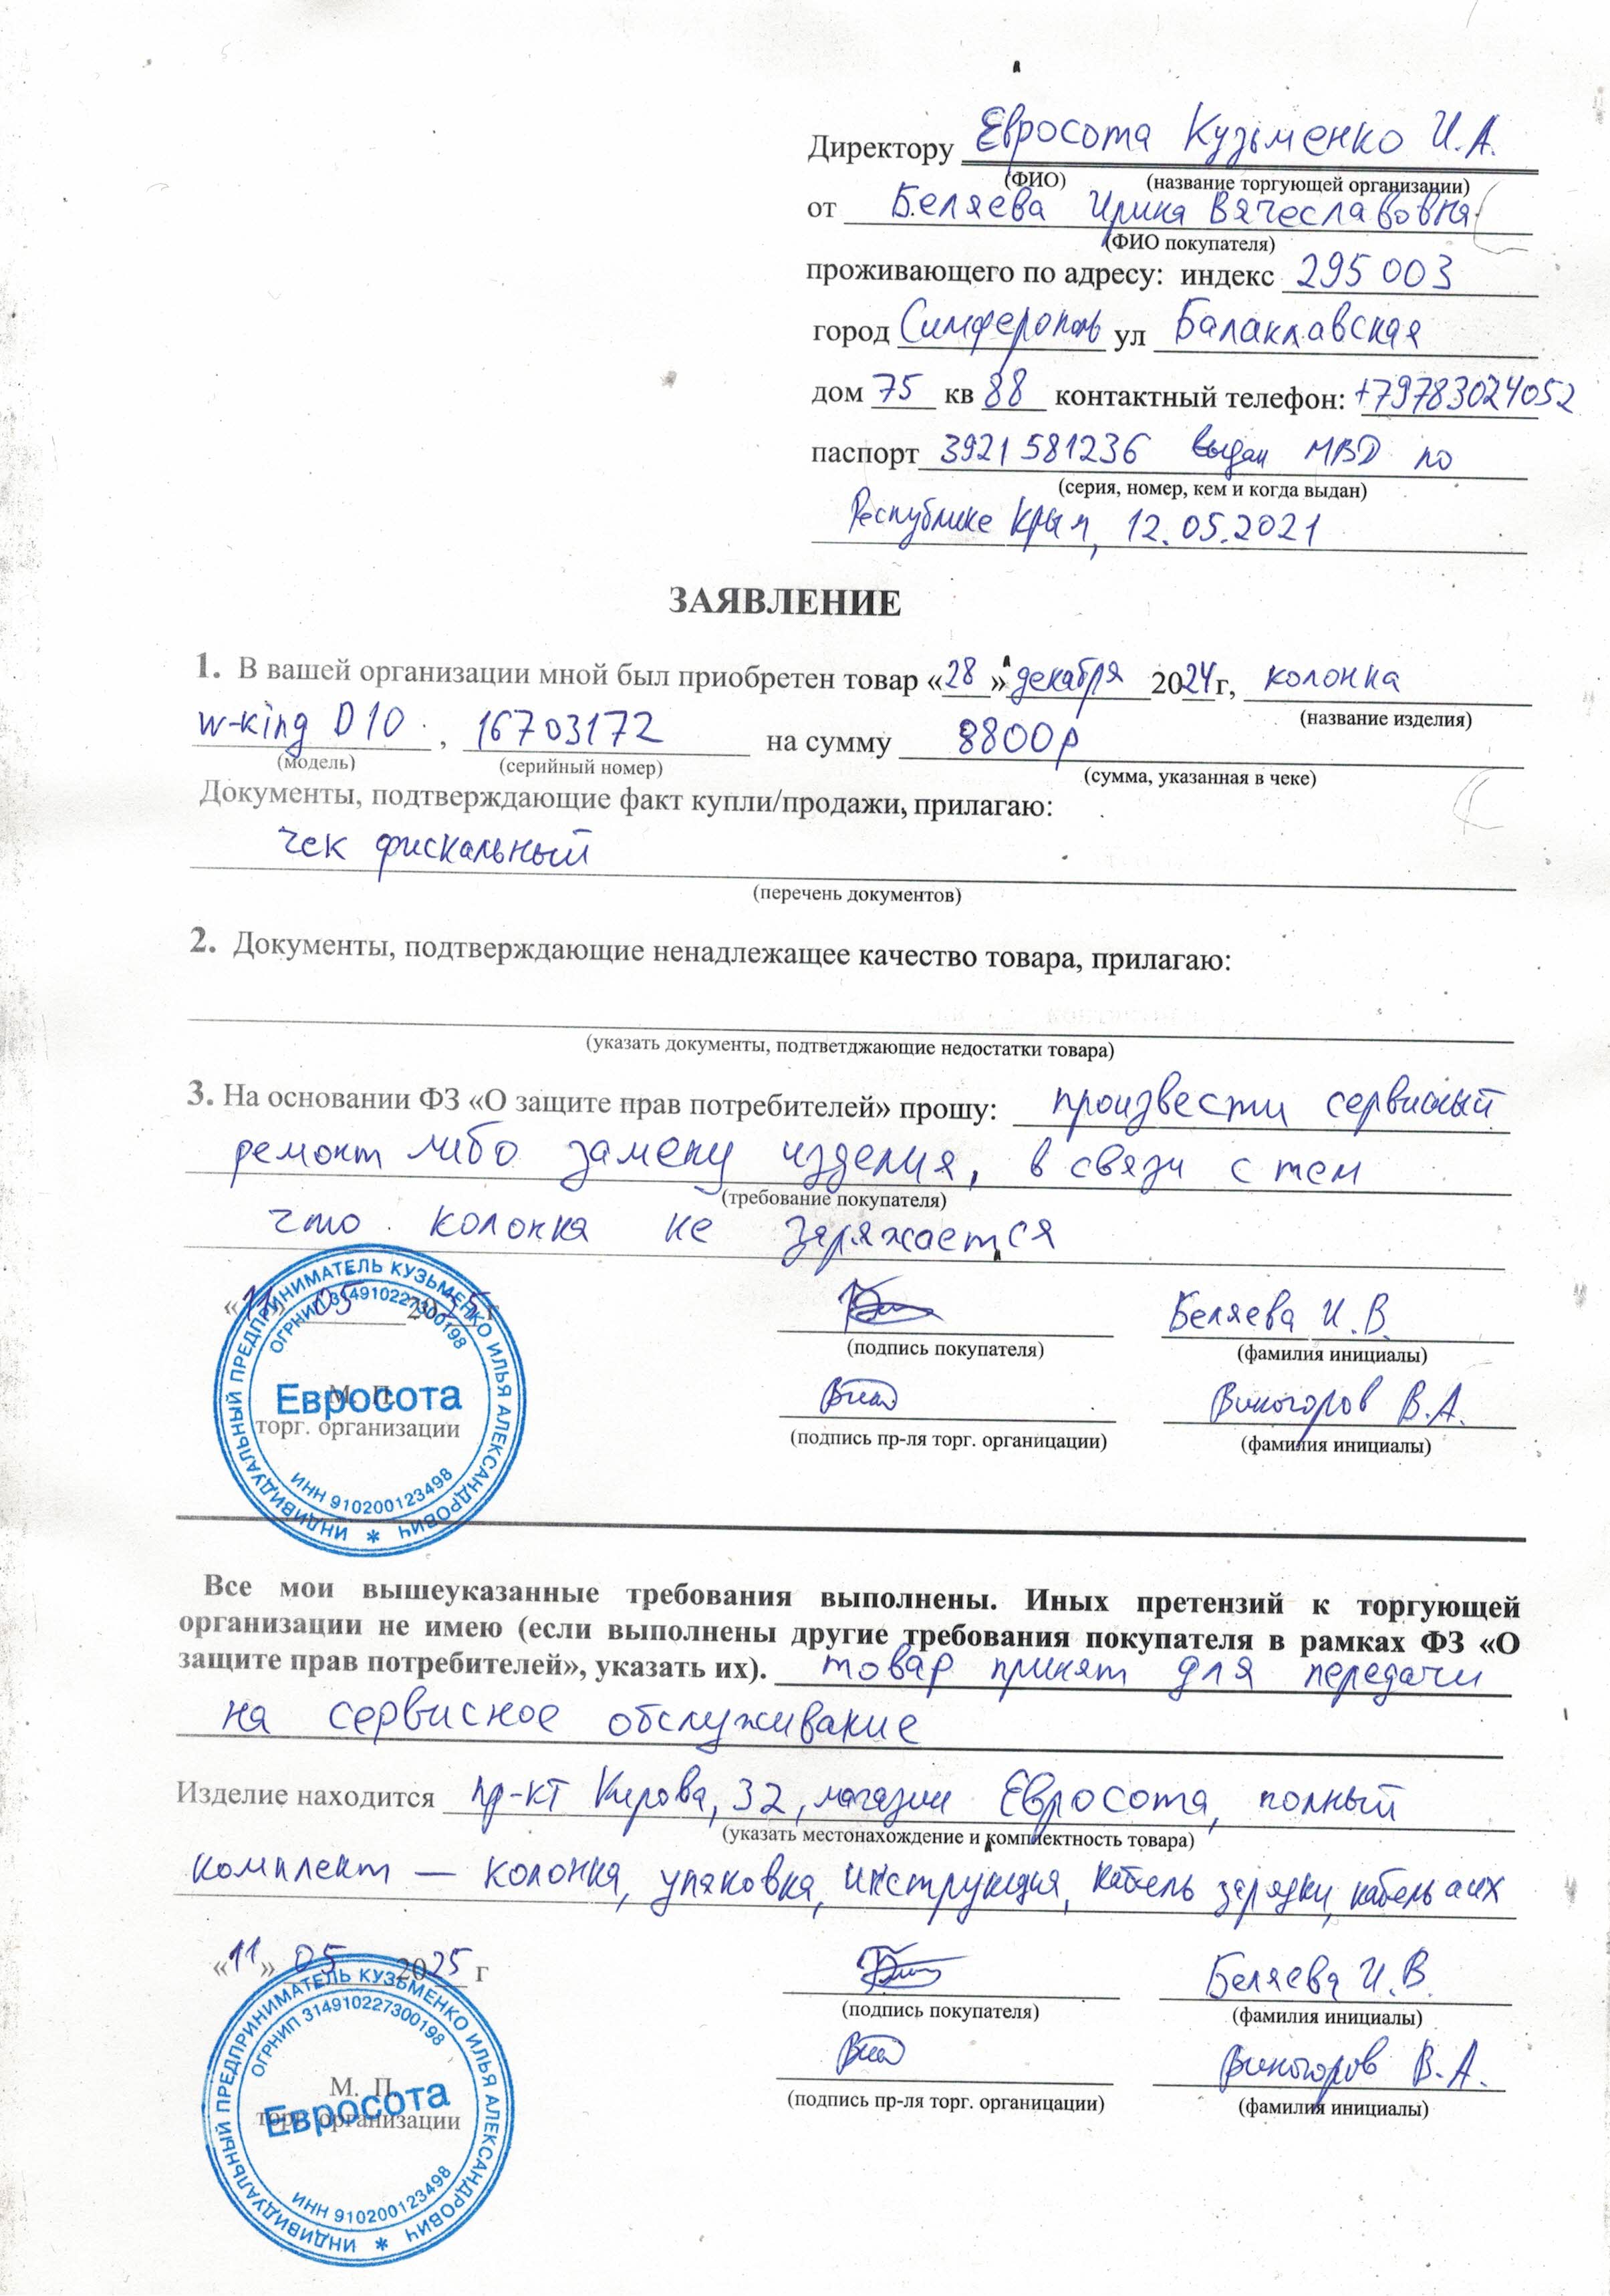 Директору Евросота Кузьменко И.А.
(ФИО) (название торгующей организации)
от Беляева Ирина Вячеславовна
(ФИО покупателя)
проживающего по адресу: индекс 295 003
город Симферополь ул Балаклавская
дом 75 кв 88 контактный телефон: +79783024052
паспорт 3921 581236 выдан МВД по
(серия, номер, кем и когда выдан)
Республике Крым, 12.05.2021
ЗАЯВЛЕНИЕ
1. В вашей организации мной был приобретен товар «28» декабря 2024г, колонка
(название изделия)
w-king D10, 16703172 на сумму 8800р
(модель) (серийный номер) (сумма, указанная в чеке)
Документы, подтверждающие факт купли/продажи, прилагаю:
чек фискальный
(перечень документов)
2. Документы, подтверждающие ненадлежащее качество товара, прилагаю:
(указать документы, подтветджающие недостатки товара)
3. На основании ФЗ «О защите прав потребителей» прошу: произвести сервисный
ремонт либо замену изделия, в связи с тем
(требование покупателя)
что колонка не заряжается
«11» 05 2025 г Беляева И.В.
(подпись покупателя) (фамилия инициалы)
Виногоров В.А.
М. П.
торг. организации
(подпись пр-ля торг. органицации) (фамилия инициалы)
ИНДИВИДУАЛЬНЫЙ ПРЕДПРИНИМАТЕЛЬ КУЗЬМЕНКО ИЛЬЯ АЛЕКСАНДРОВИЧ *
ОГРНИП 314910227300198
Евросота
ИНН 910200123498
Все мои вышеуказанные требования выполнены. Иных претензий к торгующей
организации не имею (если выполнены другие требования покупателя в рамках ФЗ «О
защите прав потребителей», указать их). товар принят для передачи
на сервисное обслуживание
Изделие находится пр-кт Кирова, 32, магазин Евросота, полный
(указать местонахождение и комплектность товара)
комплект — колонка, упаковка, инструкция, кабель зарядки, кабель aux
«11» 05 2025 г Беляева И.В.
(подпись покупателя) (фамилия инициалы)
Виногоров В.А.
М. П.
торг. организации
(подпись пр-ля торг. органицации) (фамилия инициалы)
ИНДИВИДУАЛЬНЫЙ ПРЕДПРИНИМАТЕЛЬ КУЗЬМЕНКО ИЛЬЯ АЛЕКСАНДРОВИЧ *
ОГРНИП 314910227300198
Евросота
ИНН 910200123498